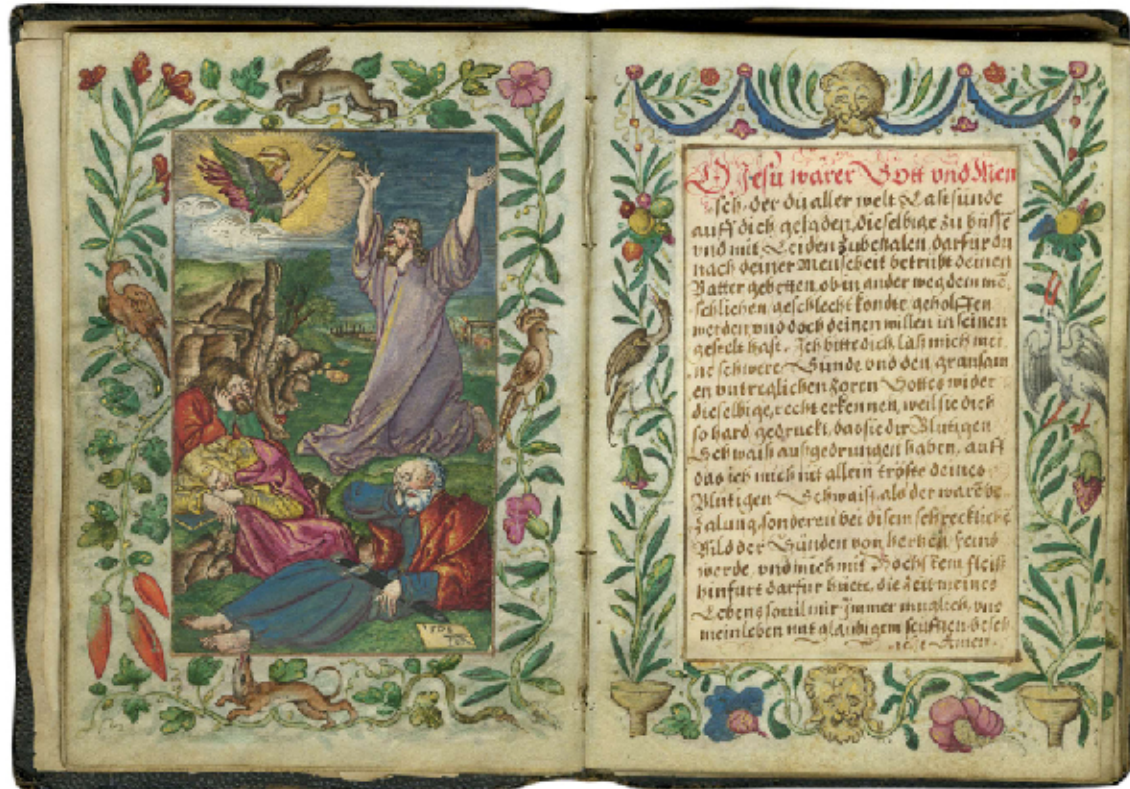 1508
AD
O Jesu warer Gott vnd Men
sch, der du aller welt Last sünde
auff dich geladen, dieselbige zu büssē
vnd mit Leiden zubezalen, darfur du
nach deiner Menscheit betrübt deinen
Vatter gebetten, ob in ander weg dem mē,
schlichen geschlecht kondte geholffen
werden, vnd doch deinen willen in seinen
gestelt hast, Ich bitte dich, laß mich mei
ne schwere Sünde vnd den grausam
en vntreglichen Zoren Gottes wider
dieselbige, recht erkennen, weil sie dich
so hard gedruckt, das sie dir Blutigen
Schwaiß außgedrungen haben, auff
das ich mich nit allein tröste deines
Blutigen Schwaiß, als der ware be
zalung, sonderen bei disem schrecklichē
Bild der Sünden von herzen feind
werde, vnd mich mit Höchstem fleiß
hinfurt darfur huete, die Zeit meines
Lebens souil mir Immer muglich, vnd
mein leben mit glaubigem seufftzen besch
Amen